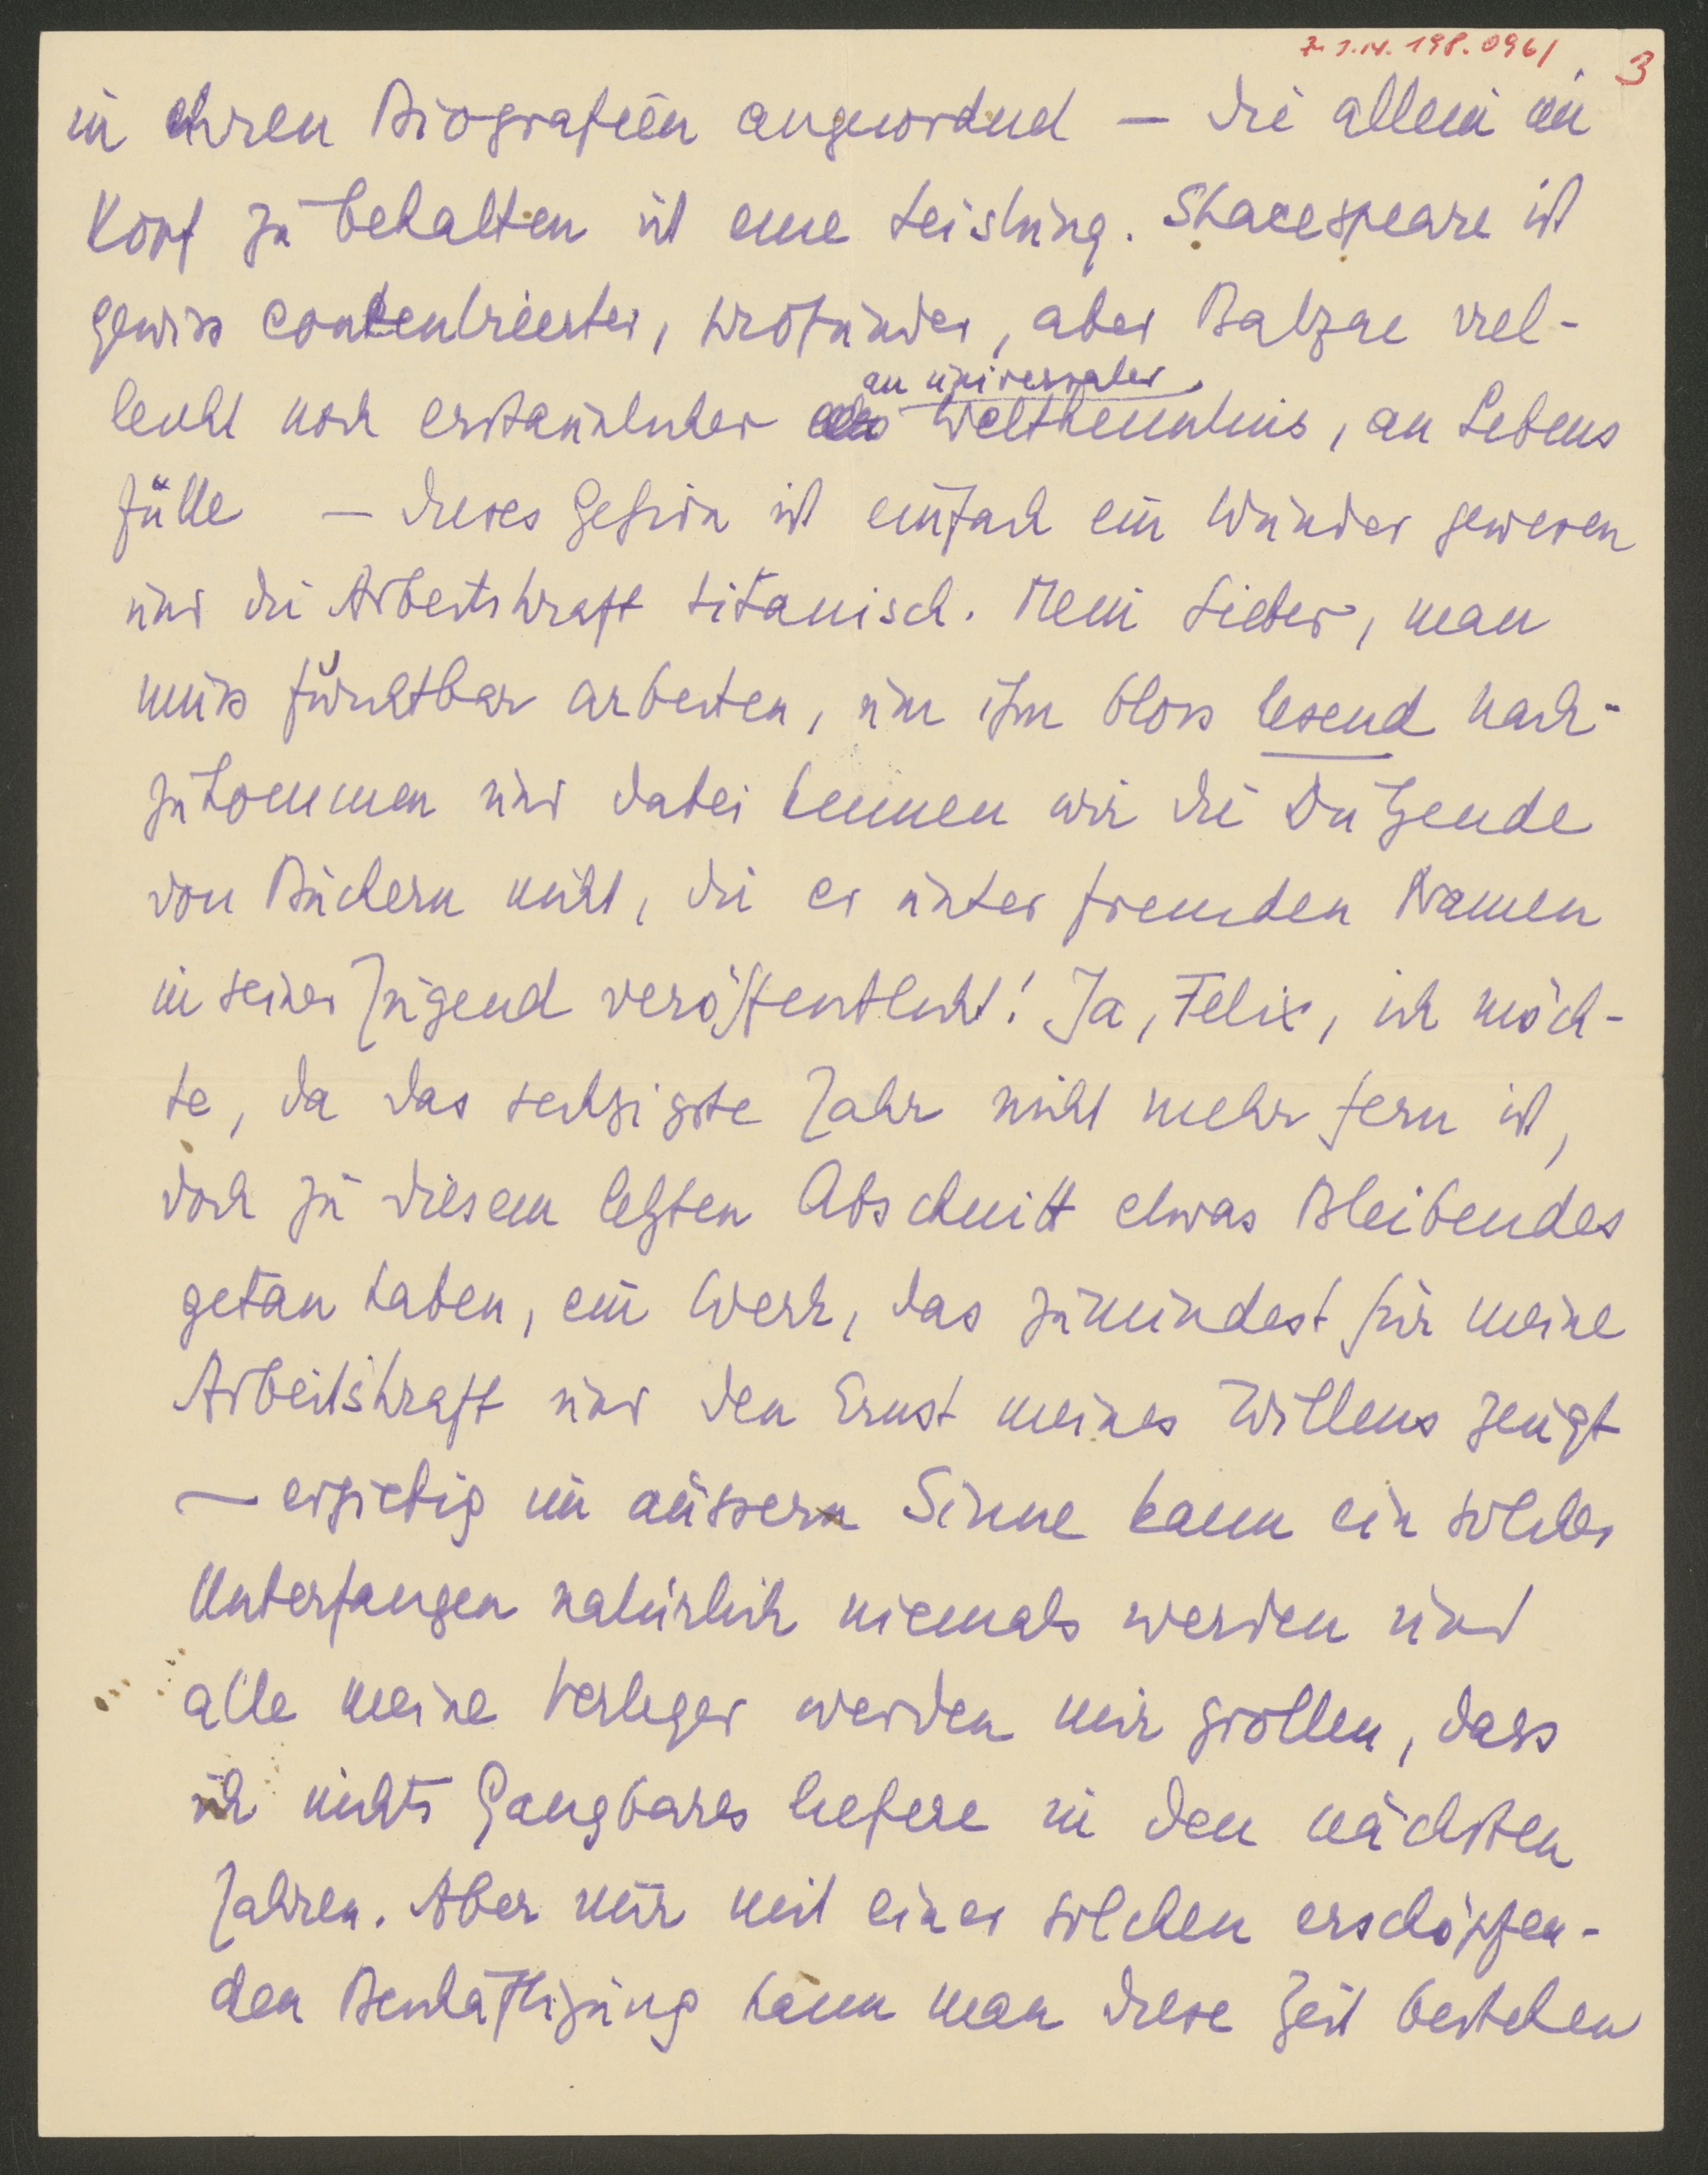 3
in ihren Biografieen angeordnet — die allein im
Kopf zu behalten ist eine Leistung. Shacespeare ist
gewiss concentrierter, profunder, aber Balzac viel-
an universaler
leicht noch erstaunlicher Weltkenntnis, an Lebens
fülle — dieses Gehirn ist einfach ein Wunder gewesen
und die Arbeitskraft titanisch. Mein Lieber, man
muss furchtbar arbeiten, um ihm bloss lesend nach-
zukommen und dabei kennen wir die Dutzende
von Büchern nicht, die er unter fremden Namen
in seiner Jugend veröffentlicht! Ja, Felix, ich möch-
te, da das sechzigste Jahr nicht mehr fern ist,
doch zu diesem letzten Abschnitt etwas Bleibendes
getan haben, ein Werk, das zumindest für meine
Arbeitskraft und den Ernst meines Willens zeugt
— ergiebig im äussern Sinne kann ein solches
Unterfangen natürlich niemals werden und
alle meine Verleger werden mir grollen, dass
ich nichts Gangbares liefere in den nächsten
Jahren. Aber nur mit einer solchen erschöpfen-
den Beschäftigung kann man diese Zeit bestehen